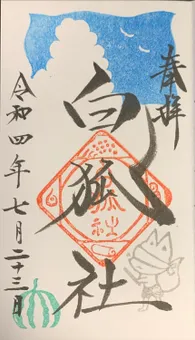 奉拝
白狐社
狐社
令和四年七月二十三日